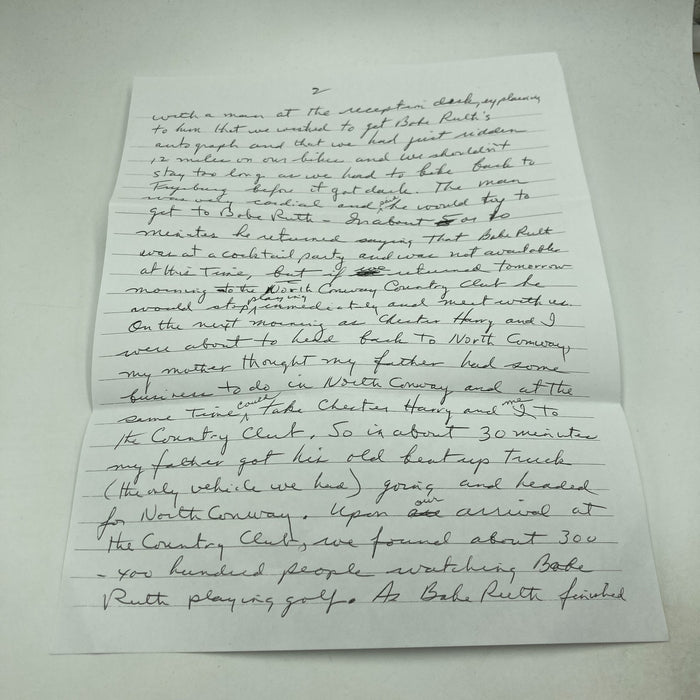 2
with a man at the reception desk, explaining
to him that we wished to get Babe Ruth's
autograph and that we had just ridden
12 miles on our bikes and we shouldn't
stay too long as we had to bike back to
Fryeburg before it got dark. The man
was very cordial and he would try to
get to Babe Ruth – In about 5 or 10
minutes he returned saying That Babe Ruth
was at a cocktail party and was not available
at this Time, but if returned tomorrow
morning to the North Conway Country Club he
would stop playing immediately and meet with us.
On the next morning as Chester Harry and I
were about to head back To North Conway,
my mother thought my father had some
business to do in North Conway and at the
same Time could Take Chester Harry and me to
the Country Club. So in about 30 minutes
my father got his old beat up Truck
(the only vehicle we had) going and headed
for North Conway. Upon our arrival at
the Country Club, we found about 300
- 400 hundred people watching Babe
Ruth playing golf. As Babe Ruth finished